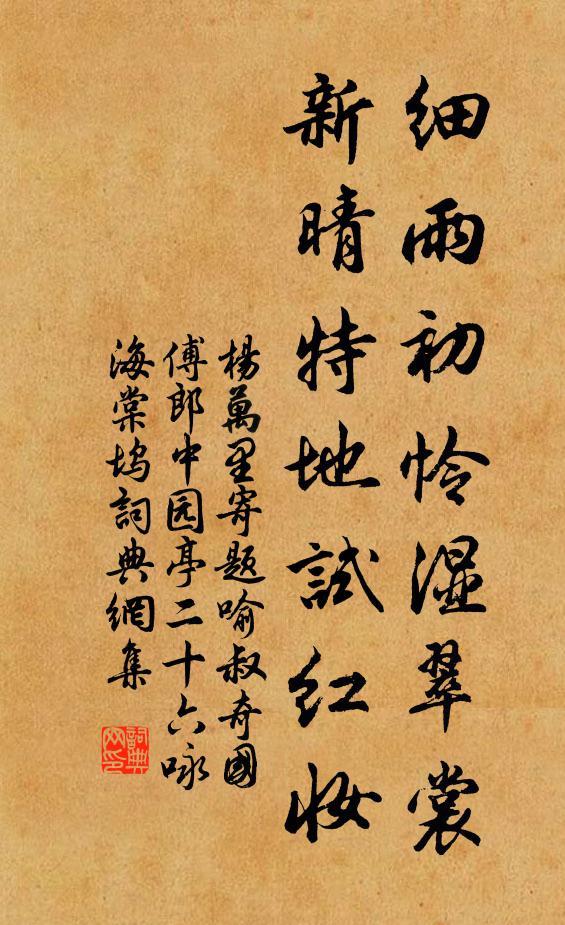 细雨初怜湿翠裳
新晴特地試红妆
楊萬里寄题喻叔奇國
傅郎中园亭二十六咏
海棠坞詞典網集
詞典网印